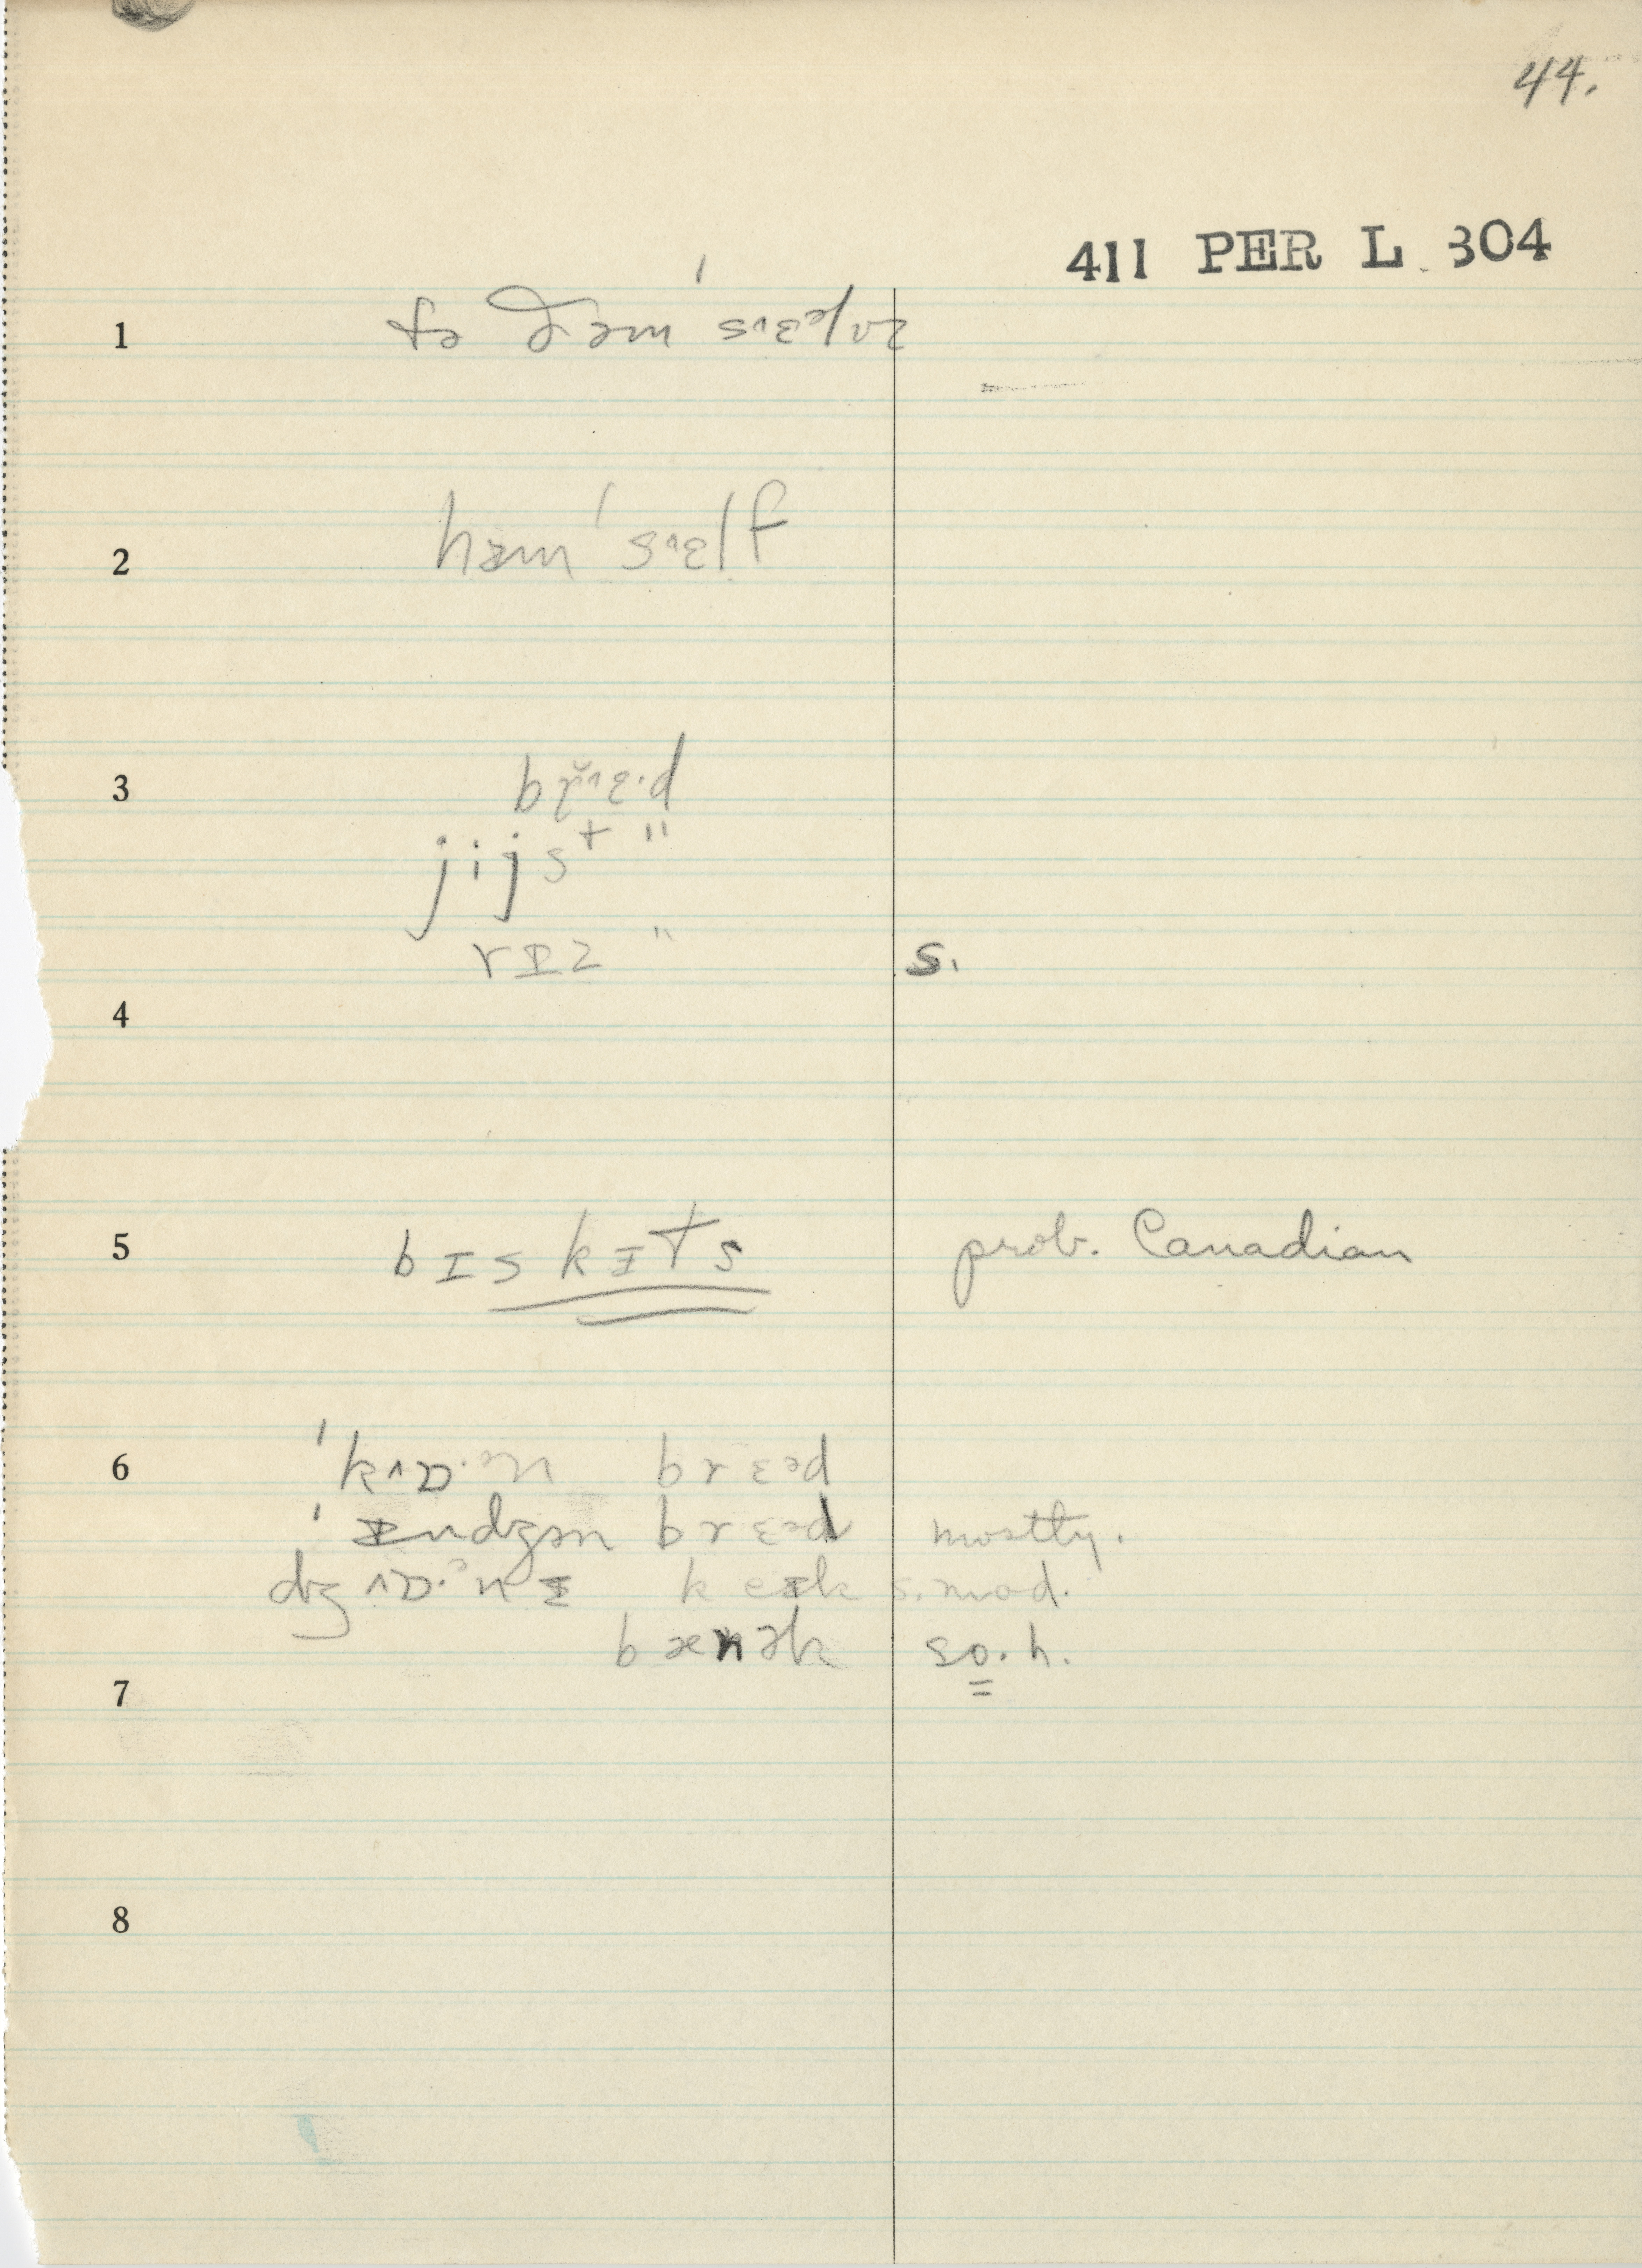 44.
411 PER L 304
1 tə ðəm ˈsᶺɛᵊlvz
2 həm ˈsᶺɛlf
3 brᶺɛ·d
jijst "
rɪz " s.
4
5 bɪskɪts prob. Canadian
6 ˈkᴧɒ·ᵊn brɛᵊd
ˈɪndʒən brɛᵊd mostly.
dʒᴧɒ·ᵊnɪ keɪk s. mod.
bænək so. h.
7
8